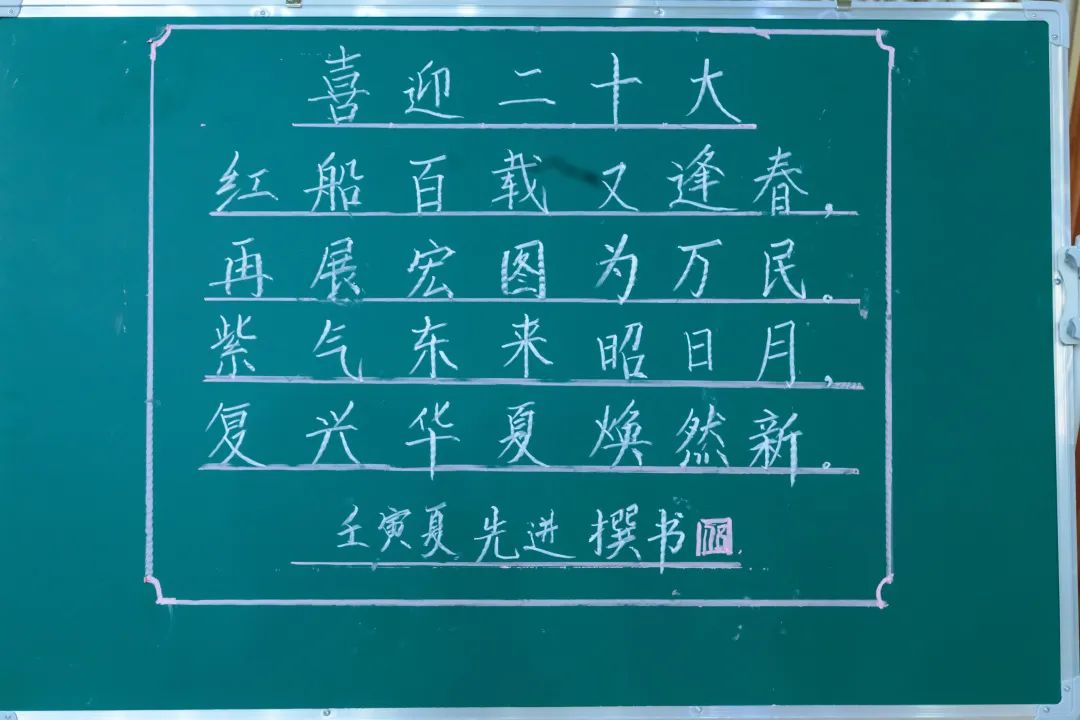 喜迎二十大
红船百载又逢春，
再展宏图为万民。
紫气东来昭日月，
复兴华夏焕然新。
壬寅夏先进撰书